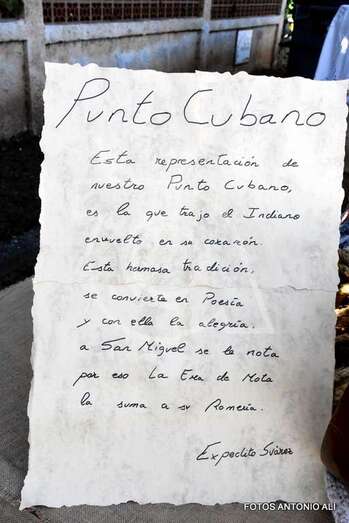 Punto Cubano
Esta representación de
nuestro Punto Cubano,
es la que trajo el Indiano
envuelto en su corazón.
Esta hermosa tradición,
se convierte en Poesía
y con ella la alegría.
a San Miguel se le nota
por eso La Era de Mota
la suma a su Romería.
Expedito Suárez
FOTOS ANTONIO ALÍ